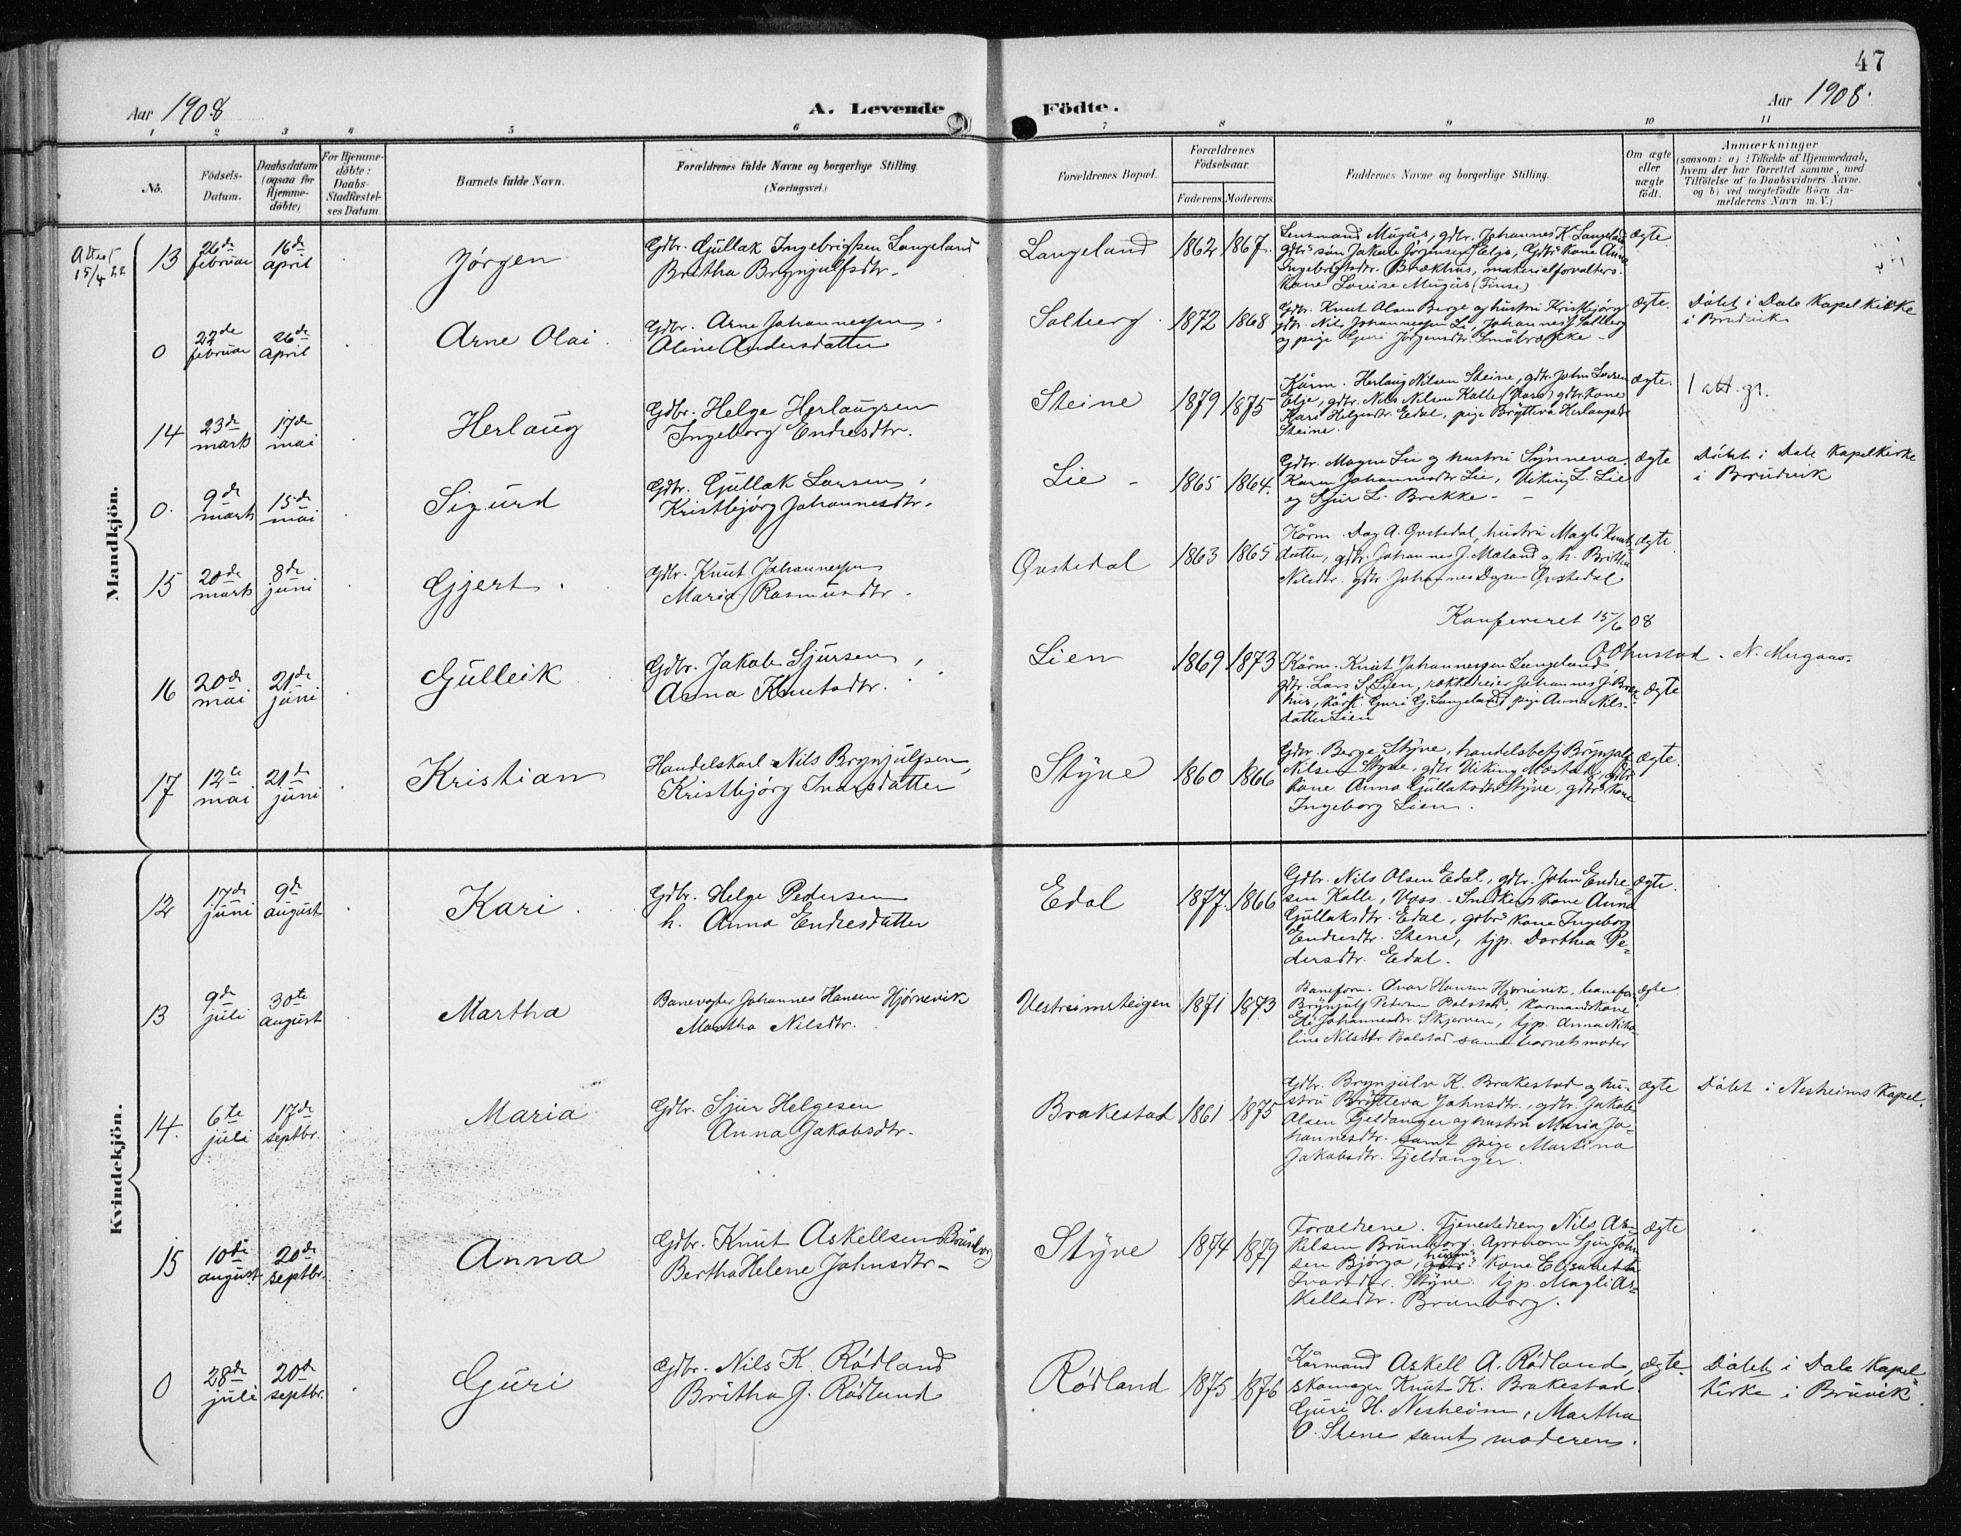 47
Aar 1908
A. Levende
Födte.
Aar 1908.
1 2 3 4 5 6 7 8 9 10 11
No.
Födsels-
Datum.
Daabsdatum
(ogsaa for
Hjemme-
döbte)
For Hjemme-
döbte:
Daabs-
Stadfæstel-
ses Datum
Barnets fulde Navn.
Forældrenes fulde Navne og borgerlige Stilling.
(Næringsvei.)
Forældrenes Bopæl.
Forældrenes
Födselsaar.
Faderens. Moderens.
Faddernes Navne og borgerlige Stilling.
Om ægte
eller
uægte
født.
Anmærkninger
(saasom: a) i Tilfælde af Hjemmedaab,
hvem der har forrettet samme, med
Tilföielse af to Daabsvidners Navne.
og b) ved uægtefödte Börn An-
melderens Navn m. V.)
Mandkjön.
Attest
15/4 22
13
26de
februar
16de
april
Jørgen
Gdbr. Gullak Ingebrigtsen Langeland
Britha Brynjulfsdtr.
Langeland
1862 1867.
Lensmand Mugås, gdbr. Johannes K. Langeland
gdbrs søn Jakob Jørgensen Elje, Gdbrs kone Anna
Ingebrigtsdtr. Brækhus, materialforvalters
kone Lovise Mugås (Finse)
ægte
0
22de
februar
26de
april
Arne Olai
Gdbr. Arne Johannessen
Aline Andersdatter
Solberg
1872 1868
Gdbr. Knut Olsen Berge og hustru Kristbjørg
gdbr. Nils Johannessen Li, Johannes J. Solberg
og pige Guri Jørgensdtr. Småbrække
ægte.
Døbt i Dale Kapelkirke
i Brudvik
14
23de
marts
17de
mai
Herlaug
Gdbr. Helge Herlaugsen
Ingeborg Endresdtr.
Steine
1879 1875
Kårm. Herlaug Nilsen Steine, gdbr. John Larsen
Elje, gdbr. Nils Nilsen Kalle (Voss) gdbr. kone
Kari Helgesdtr. Edal, pige Brytteva Herlaugsdtr
Steine.
ægte.
1 att. gr.
0.
9de
marts
15de
mai
Sigurd
Gdbr. Gullak Larsen
Kristbjørg Johannesdtr.
Lie
1865 1864.
Gdbr. Magne Lie og hustru Synneva
Karen Johannesdtr Lie, Viking L. Lie
og Sjur L. Brekke
ægte
Døbt i Dale Kapelkirke
i Brudvik
15
20de
marts
8de
juni
Gjert
Gdbr. Knut Johannessen
Maria Rasmusdtr.
Øvstedal
1863 1865
Kårm. Dag A. Øvstedal, hustru Magli Knuts-
datter, gdbr. Johannes J. Mæland og h. Britha
Nilsdtr. gdbr. Johannes Dagsen Øvstedal
ægte.
Konfereret 15/6 08
O. Ohnstad. N. Mugaas.
16
20de
mai
21de
juni
Gulleik
Gdbr. Jakob Sjursen
Anna Knutsdtr.
Lien
1869 1873
Kårm. Knut Johannessen Langeland
gdbr. Lars S. Lien, rakkeeier Johannes J. Bræk-
hus, kårk. Guri G. Langeland, pige Anna Nils-
datter Lien
ægte
17
12te
mai
21de
juni
Kristian
Handelskarl Nils Brynjulfsen
Kristbjørg Ivarsdatter
Styve
1860 1866
Gdbr. Berge Styve, handelsbetj. Brynjulf
Nilsen Styve, gdbr. Viking Mæstad, gdbr.
kone Anna Gullaksdtr Styve, gdbrs kone
Ingeborg Lien.
ægte.
Kvindekjön.
12
17de
juni
9de
august
Kari
Gdbr. Helge Pedersen
h. Anna Endresdatter
Edal
1877. 1866
Gdbr. Nils Olsen Edal, gdbr. John Endre-
sen Kalle, Voss. Snedkers kone Anna
Gullaksdtr. Edal, gdbrs kone Ingeborg
Endresdtr. Stene, tjp. Dorthea Pe-
dersdtr. Edal.
ægte.
13
9de
juli
30te
august
Martha
Banevogter Johannes Hansen Hjørnevik
Martha Nilsdtr.
Vestreimsteigen
1871 1873
Baneform. Ivar Hansen Hjørnevik, banefor.
Brynjulf Petersen Bolstad, kårmandskone
Eli Johannesdtr. Skjerven, tjp. Anna Niko-
line Nilsdtr Bolstad samt barnets moder
ægte.
14.
6te
juli
17de
septbr.
Maria
Gdbr. Sjur Helgesen
Anna Jakobsdtr.
Brakestad
1861 1875
Gdbr. Brynjulv K. Brakestad og hu-
stru Brytteva Johnsdtr., gdbr. Jakob
Olsen Fjeldanger og hustru Maria Jo-
hannesdtr. samt pige Martina
Jakobsdtr. Fjeldanger.
ægte
Døbt i Nesheims Kapel.
15
10de
august
20de
septbr.
Anna
Gdbr. Knut Askellsen Brunborg
Bertha Helene Johnsdtr.
Styve
1874 1879
Forældrene. Tjenestedreng Nils As-
kelsen Brunborg. Agronom Sjur John-
sen Bjørgo, kone Elisabeth
Ivarsdtr. Styve. tjp. Magli As-
kellsdtr. Brunborg.
ægte
0
28de
juli
20de
septbr.
Guri
Gdbr. Nils K. Rødland
Britha J. Rødland
Rødland
1875 1876
Kårmand Askell A. Rødland,
skomager Knut K. Brakestad
Guri H. Nesheim, Martha
O. Stene samt moderen.
ægte.
Døbt i Dale Kapel-
kirke i Bruvik.